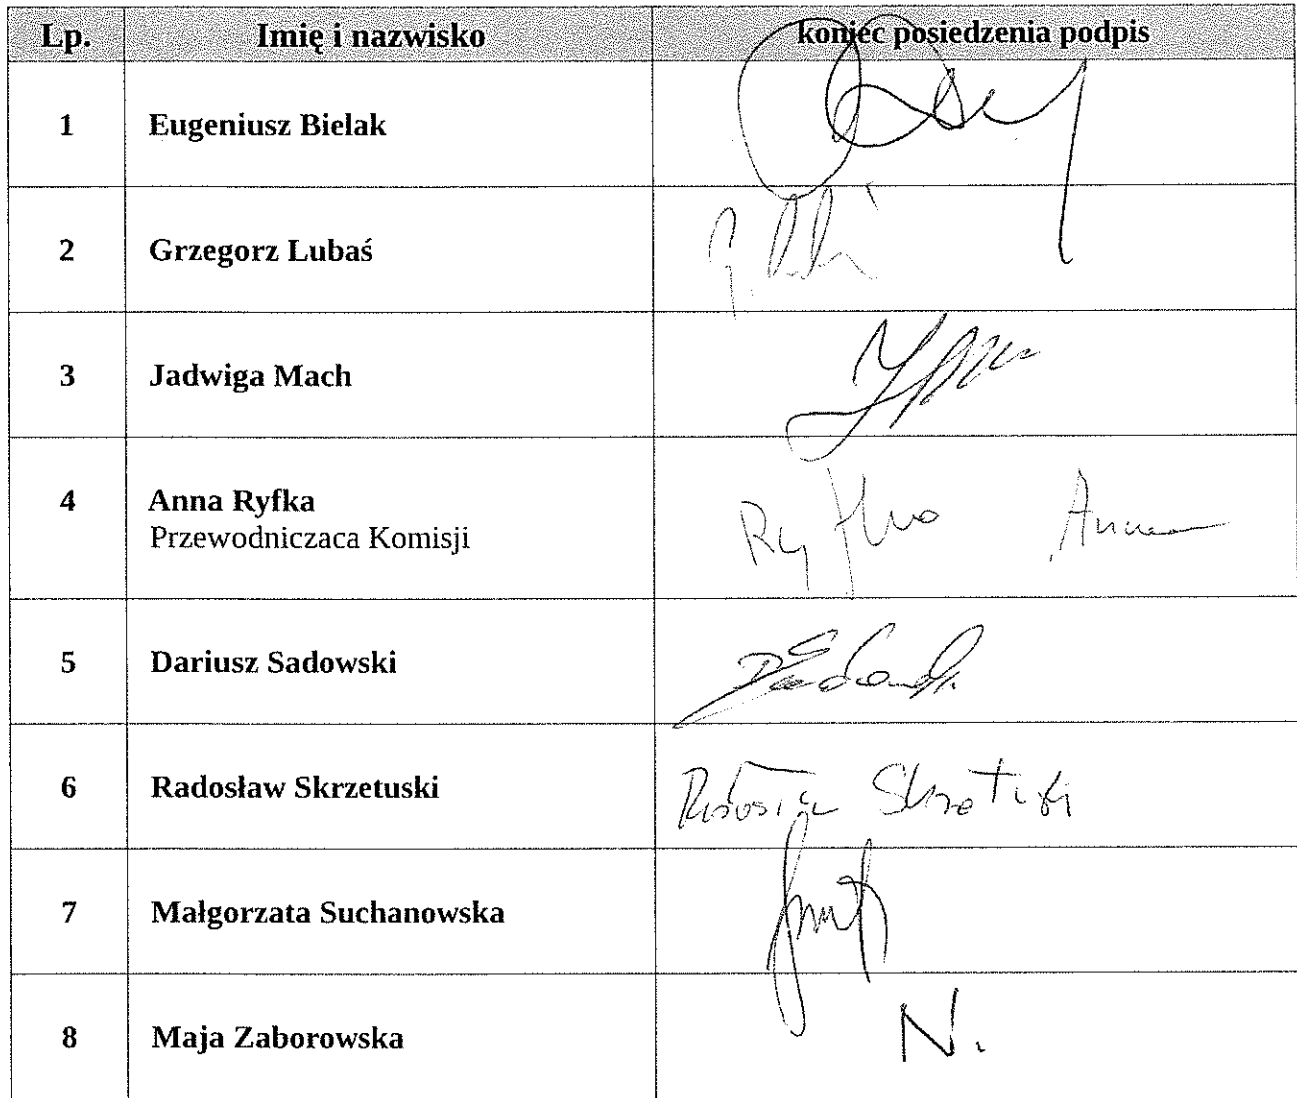 Lp. Imię i nazwisko koniec posiedzenia podpis
1 Eugeniusz Bielak
2 Grzegorz Lubaś
3 Jadwiga Mach
4 Anna Ryfka Ryfka Anna
Przewodniczaca Komisji
5 Dariusz Sadowski
6 Radosław Skrzetuski
7 Małgorzata Suchanowska
8 Maja Zaborowska N.